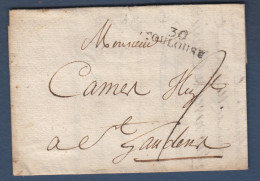 30
TOULOUSE
Monsieur
Camer
a St
Gaudens